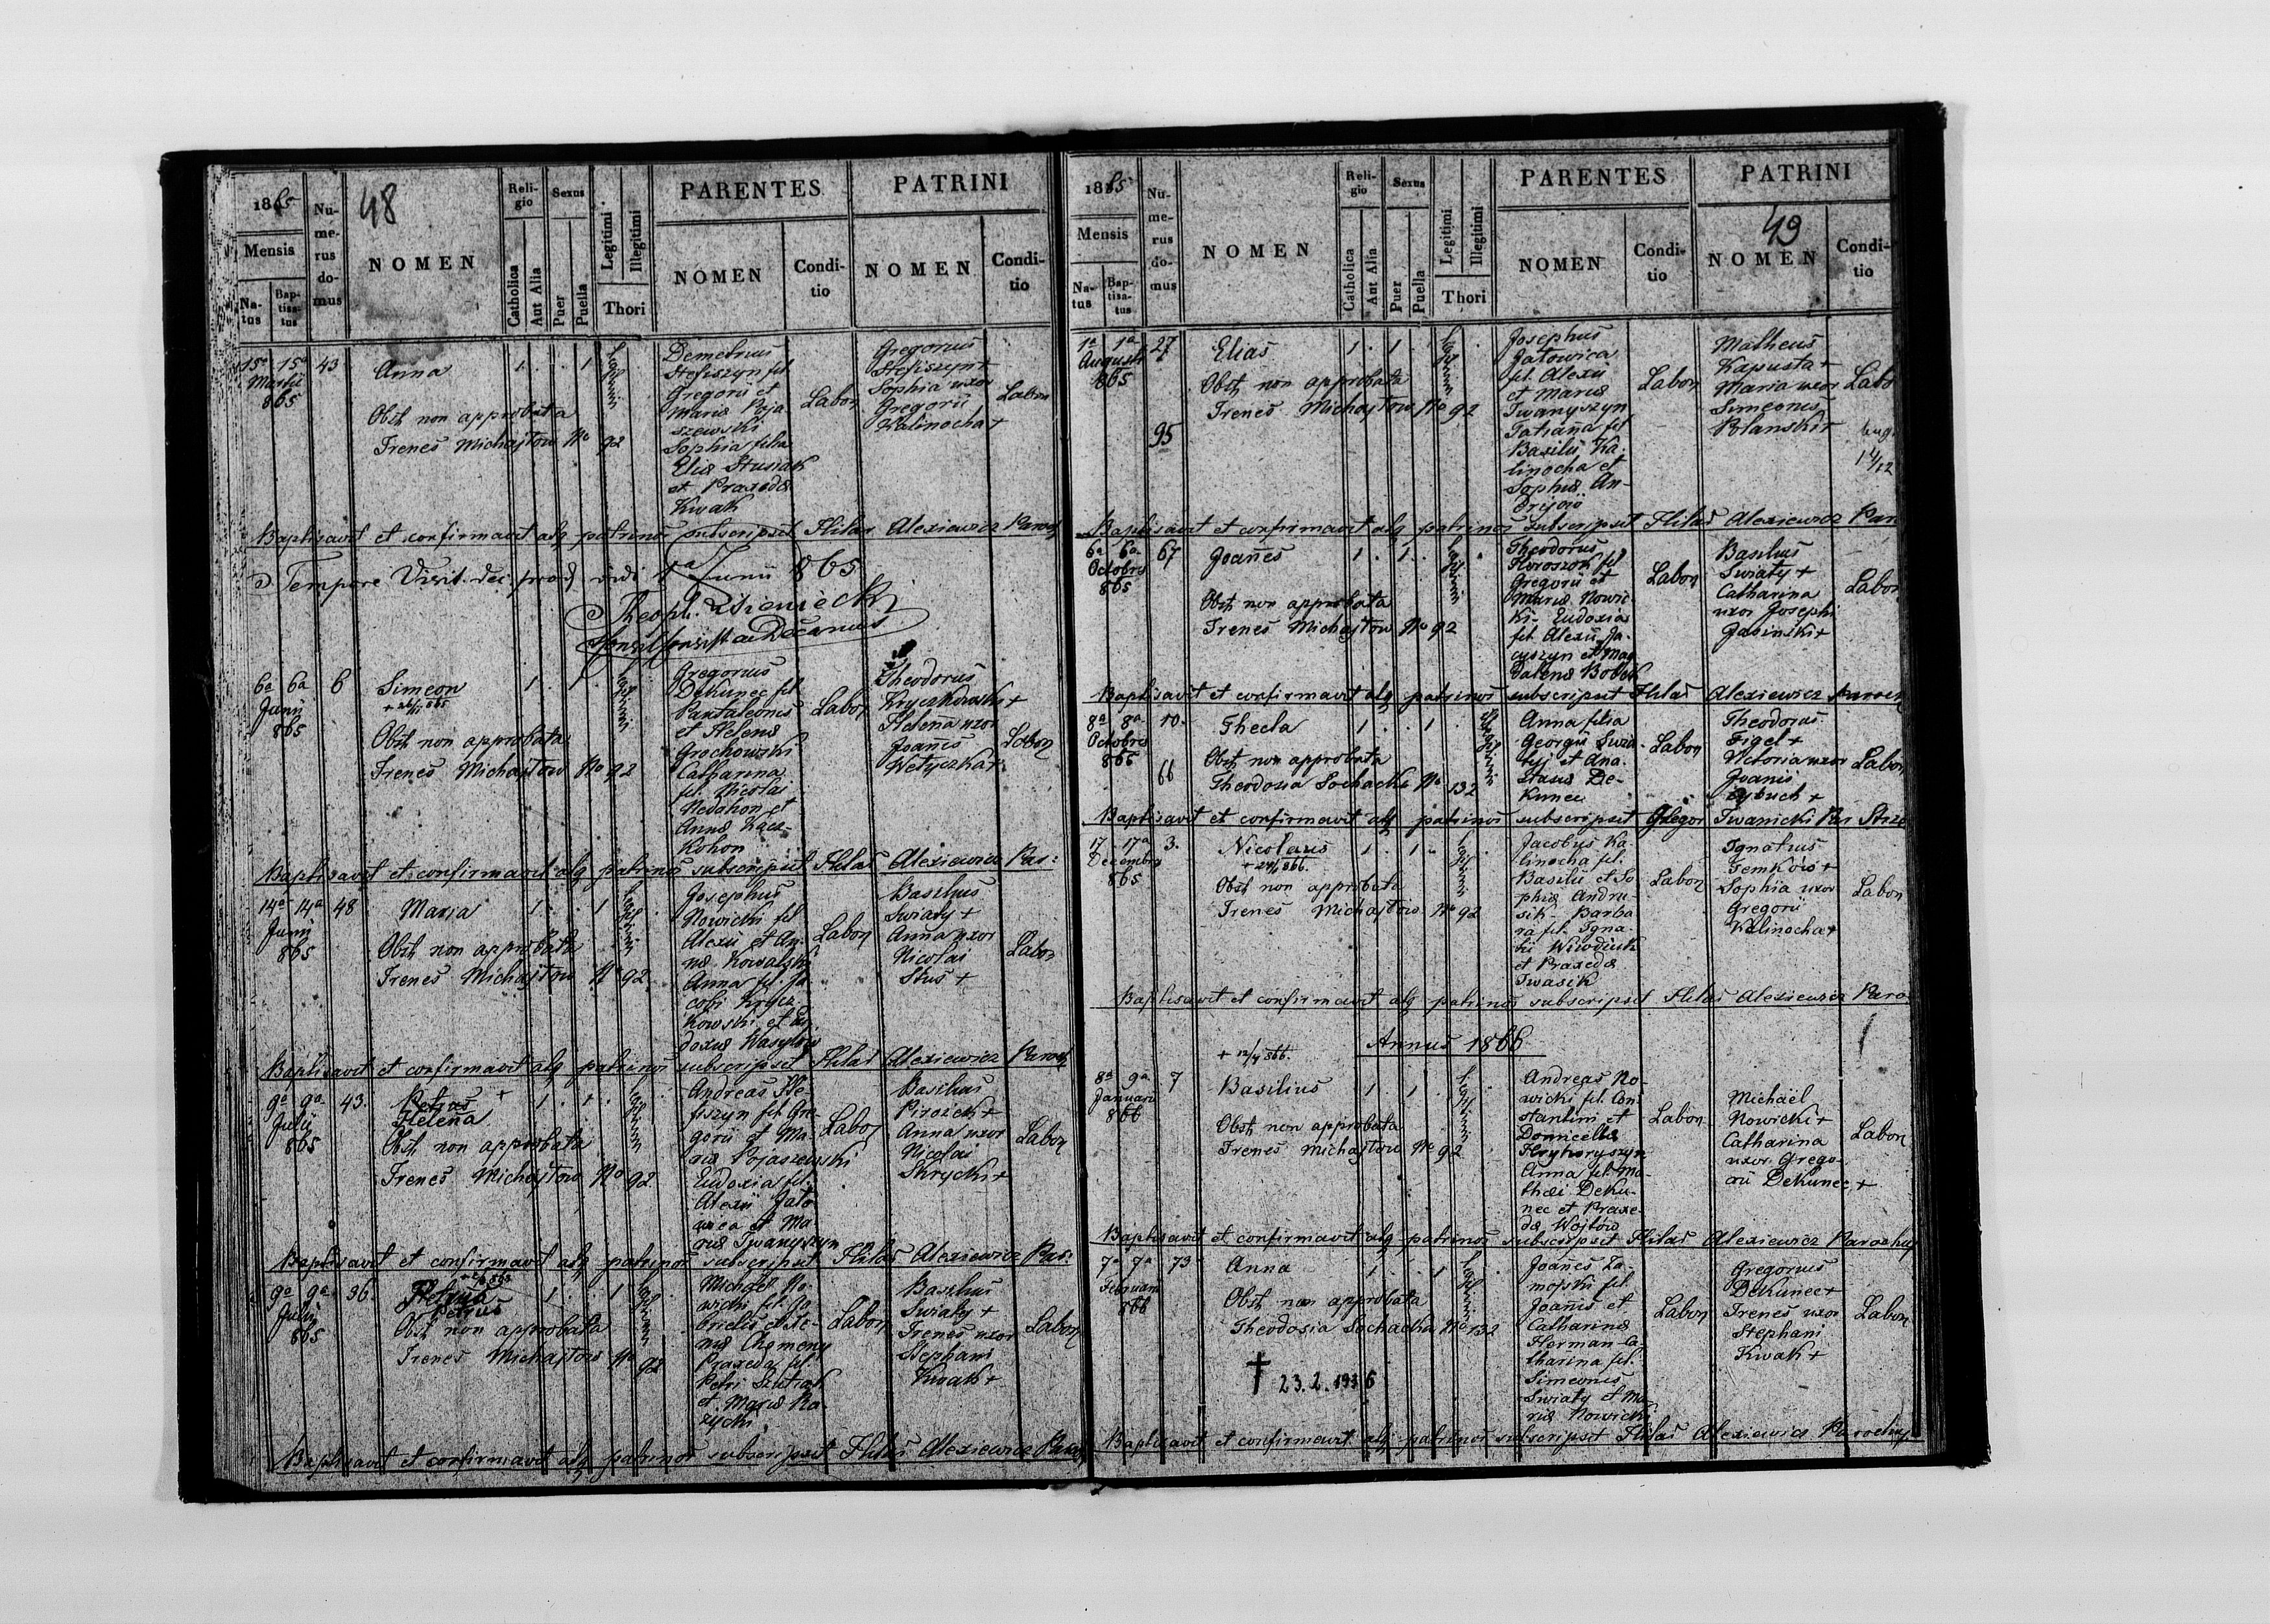 48
1865
Mensis
Na-
tus
Bap-
tisa-
tus
Nu-
me-
rus
do-
mus
NOMEN
Reli-
gio
Catholica
Aut Alia
Sexus
Puer
Puella
Legitimi
Illegitimi
Thori
PARENTES
NOMEN
Condi-
tio
PATRINI
NOMEN
Condi-
tio
15a 15a 43
Martii
865
Anna
1 . . 1
Obst non approbata
Irenes Michajłow No 92
Demetrius
Stefiszyn fil
Gregorii et
Maria Poja-
szewski
Sophia filia
Eliæ Stusiak
et Praxedæ
Kwak
Labor
Gregorius
Stefiszyn +
Sophia uxor
Gregorii
Kalinocha +
Labor
Baptisavit et confirmavit atq patrinos subscripsit Hilar Alexiewicz Paroch
Tempore Visit. dec. vidi 1a Junii 865
Decanus
6a 6a 6
Junii
865
Simeon
1 . 1 .
Obst non approbata
Irenes Michajłow No 92
Gregorius
Dekunec fil
Pantaleonis
et Helenæ
Grochowski
Catharina
fil. Nicolai
Nedohon et
Annæ Kacz-
kohon
Labor
Theodorus
Kryczkowski +
Helena uxor
Joanis
Wetyczka +
Labor
Baptisavit et confirmavit atq patrinos subscripsit Hilar Alexiewicz Par:
14a 14a 48
Junii
865
Maria
1 . . 1
Obst non approbata
Irenes Michajłow No 92
Josephus
Nowicki fil
Alexii et An-
næ Kowalski
Anna fil. Ja
cobi Krycz
kowski et Eu
doxiæ Wasylow
Labor
Basilius
Swiaty +
Anna uxor
Nicolai
Stus +
Labor
Baptisavit et confirmavit atq patrinos subscripsit Hilar Alexiewicz Paroch
9a 9a 43.
Julii
865
Petrus +
Helena
1 . 1 .
Obst non approbata
Irenes Michajłow No 92
Andreas Ste-
fiszyn fil Gre-
gorii et Ma-
riæ Pojaszewski
Eudoxia fil.
Alexii Jato
wica et Ma-
riæ Iwanyszyn
Labor
Basilius
Pirozek +
Anna uxor
Nicolai
Skrycki +
Labor
Baptisavit et confirmavit atq patrinos subscripsit Hilar Alexiewicz Par:
9a 9a 36.
Julii
865
Petrus
1 . . 1
Obst non approbata
Irenes Michajłow No 92
Michael No-
wicki fil. Ga
brielis et Xe-
niæ
Praxeda fil.
Petri
et Mariæ Ro-
zycki
Labor
Basilius
Swiaty +
Irenes uxor
Stephani
Kwak +
Labor
Baptisavit et confirmavit atq patrinos subscripsit Hilar Alexiewicz Paroch
1865
Mensis
Na-
tus
Bap-
tisa-
tus
Nu-
me-
rus
do-
mus
NOMEN
Reli-
gio
Catholica
Aut Alia
Sexus
Puer
Puella
Legitimi
Illegitimi
Thori
PARENTES
NOMEN
Condi-
tio
PATRINI
49
NOMEN
Condi-
tio
1a 1a 27
Augusti
865
95
Elias
1 . 1 .
Obst non approbata
Irenes Michajłow No 92
Josephus
Jatowica
fil. Alexii
et Mariæ
Iwanyszyn
Tatiana fil
Basilii Ka-
linocha et
Sophiæ An-
drijów
Labor
Matheus
Kapusta +
Maria uxor
Simeonis
Polanski +
Labo
Baptisavit et confirmavit atq patrinos subscripsit Hilar Alexiewicz Par
6a 6a 67
Octobris
865
Joañes
1 . 1 .
Obst non approbata
Irenes Michajłow No 92
Theodorus
Horoszok fil
Gregorii et
Mariæ Nowic-
ki - Eudoxia
fil. Alexii Ja-
cyszyn et Mag
dalenæ Bobyk
Labor
Basilius
Swiaty +
Catharina
uxor Josephi
Jasinski +
Labor
Baptisavit et confirmavit atq patrinos subscripsit Hilar Alexiewicz Paroch
8a 8a 10.
Octobris
865
66
Thecla
1 . . 1
Obst non approbata
Theodosia Sochacka No 132
Anna filia
Georgii
et Ana-
stasiæ De-
kunec
Labor
Theodorus
Figel +
Victoria uxor
Joanis
Cybuch +
Labor
Baptisavit et confirmavit atq patrinos subscripsit Gregor Iwanicki Par
17 17a 3.
Decembris
865
Nicolaus
1 . 1 .
Obst non approbata
Irenes Michajłow No 92
Jacobus Ka-
linocha fil.
Basilii et So-
phiæ Andru-
sik - Barba
ra fil. Igna-
tii
et Praxedæ
Iwasik
Labor
Ignatius
Semków +
Sophia uxor
Gregorii
Kalinocha +
Labor
Baptisavit et confirmavit atq patrinos subscripsit Hilar Alexiewicz Paro
Annus 1866
+ 12/4 866.
8a 9a 7
Januarii
866
Basilius
1 . 1 .
Obst non approbata
Irenes Michajłow No 92
Andreas No-
wicki fil. Con
stantini et
Domicellæ
Hryhoryszyn
Anna fil. Ma
thæi Deku-
nec et Praxe-
dæ Wojtów
Labor
Michael
Nowicki +
Catharina
uxor Grego-
rii Dekunec +
Labor
Baptisavit et confirmavit atq patrinos subscripsit Hilar Alexiewicz Parochus
7a 7a 73
Februarii
866
Anna
1 . . 1
Obst non approbata
Theodosia Sochacka No 132
† 23.2.1936
Joañes Za-
mojski fil.
Joanis et
Catharinæ
Herman - Ca
tharina fil.
Simeonis
Swiaty et Ma
riæ Nowicki
Labor
Gregorius
Dekunec +
Irenes uxor
Stephani
Kwak +
Labor
Baptisavit et confirmavit atq patrinos subscripsit Hilar Alexiewicz Parochus